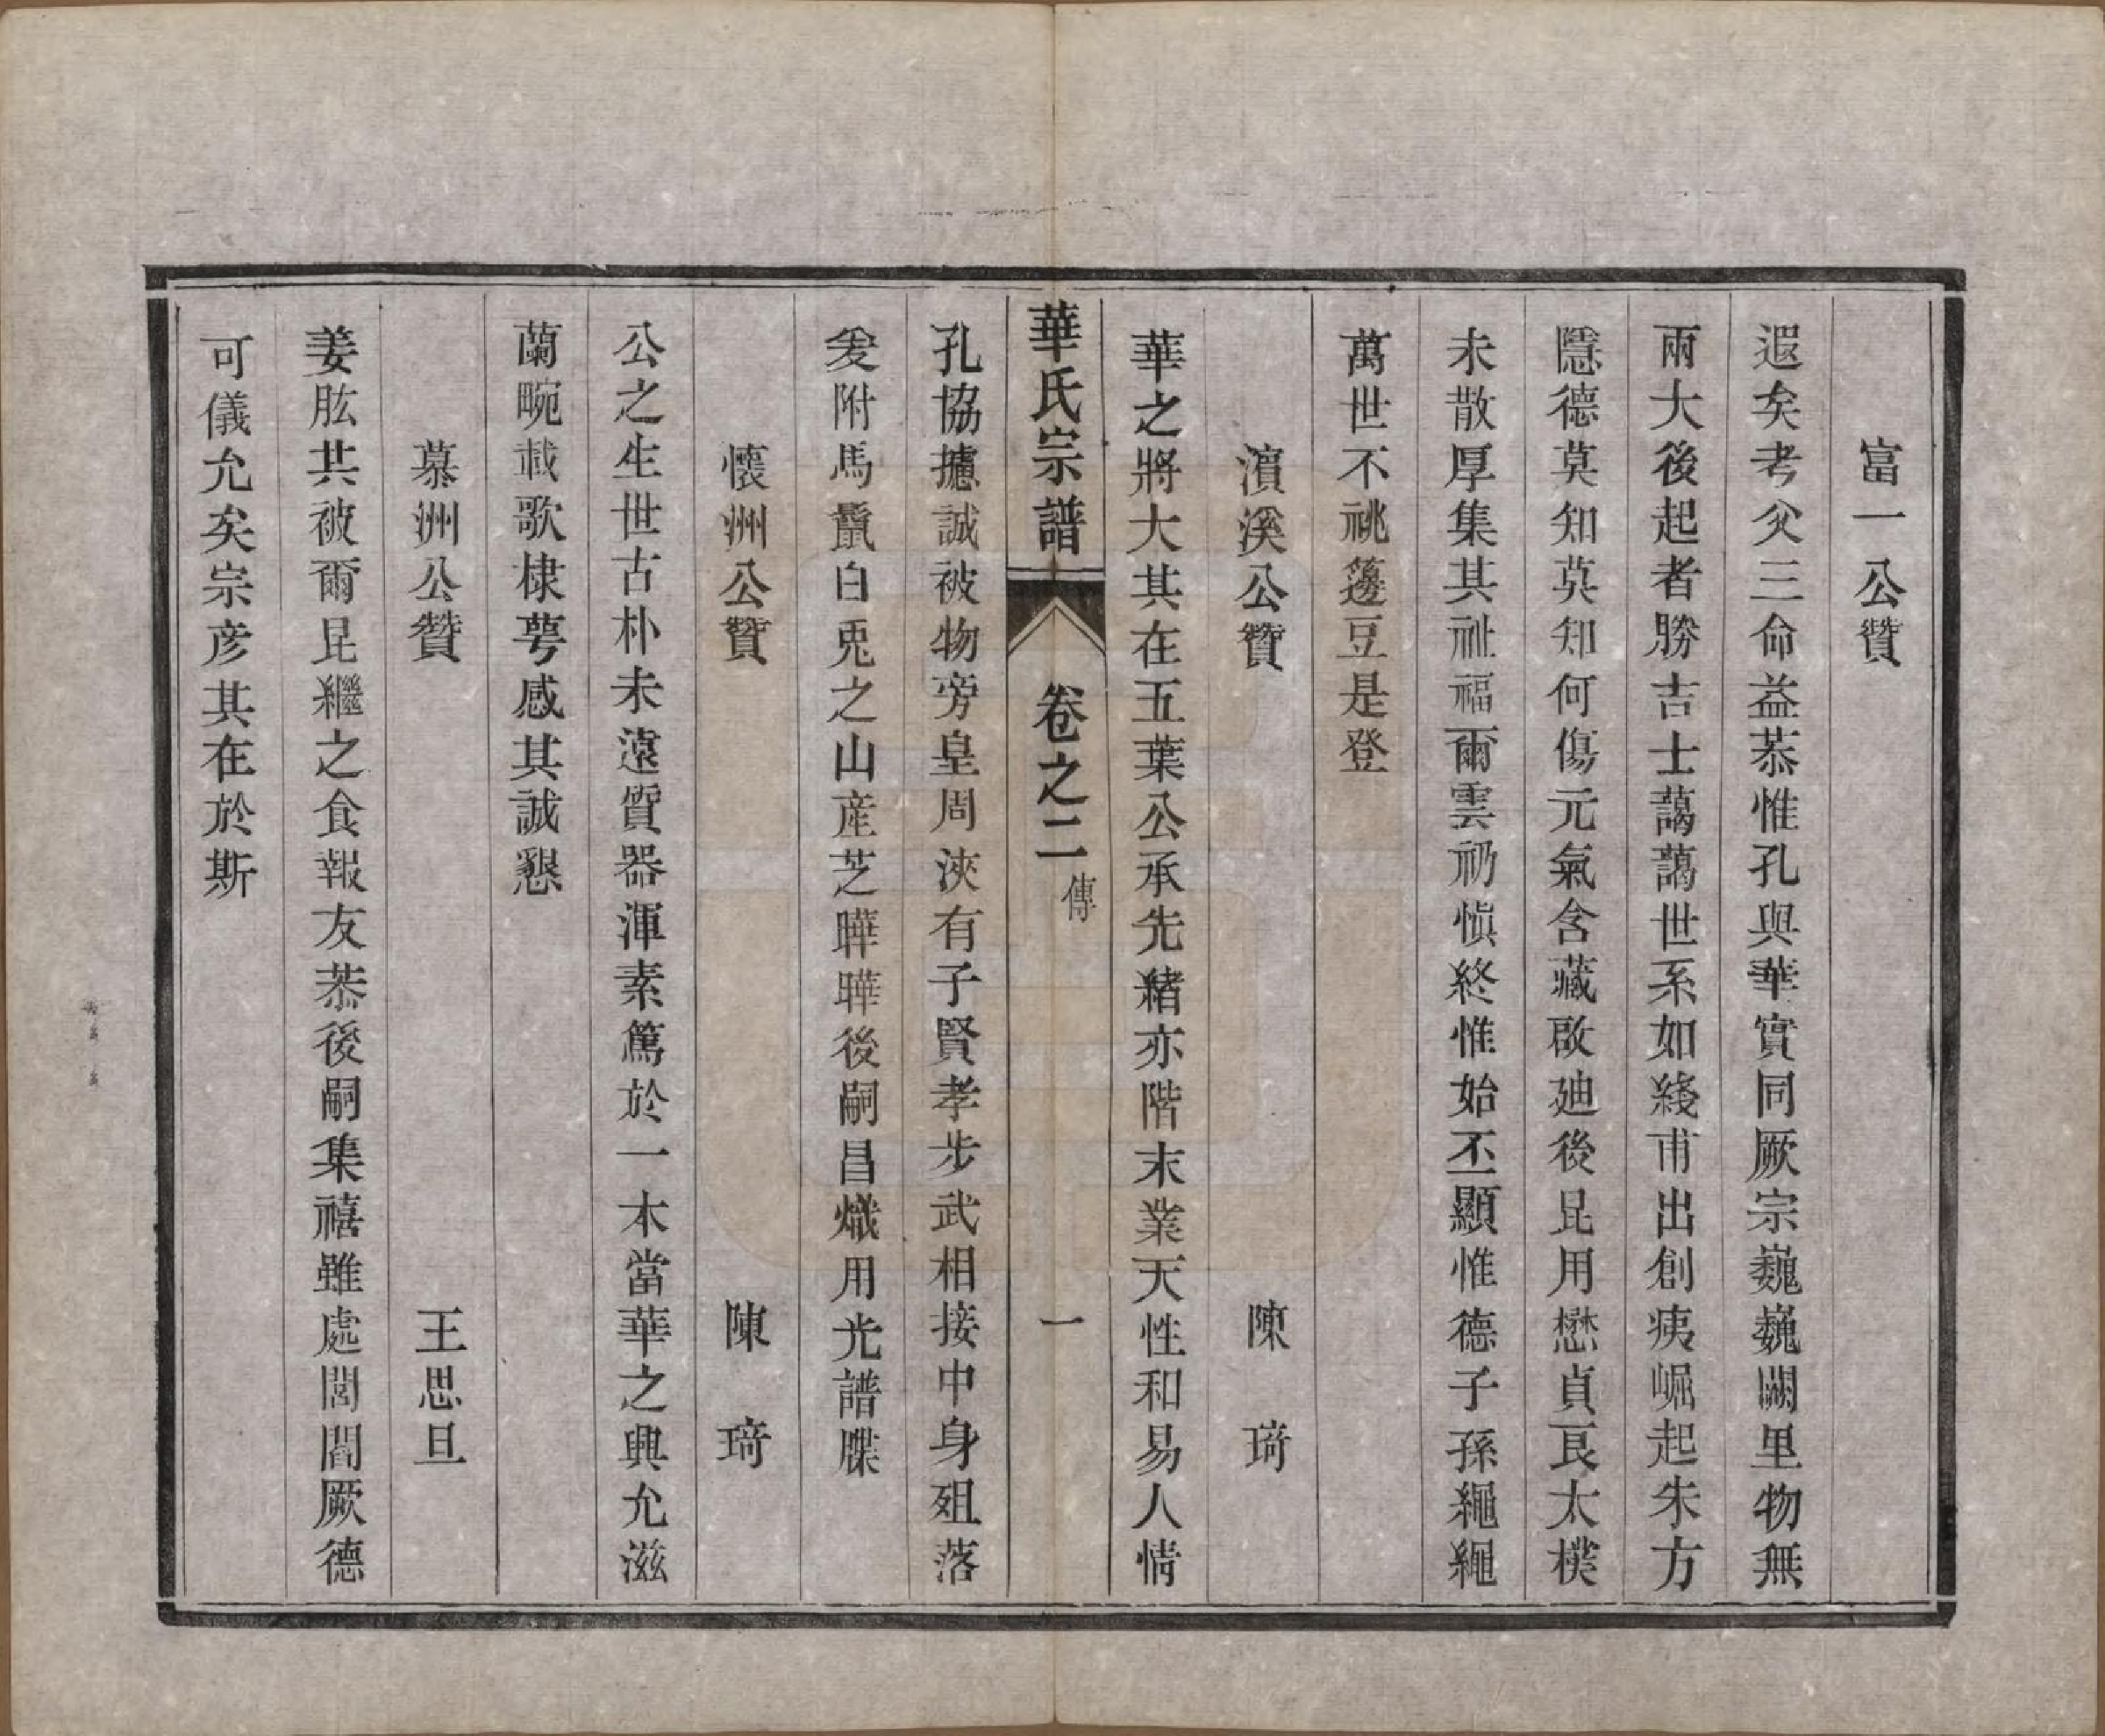 富一公贊
遐矣考父三命益恭惟孔與華實同厥宗巍巍闕里物無
兩大後起者勝吉士藹藹世系如綫甫出創痍崛起朱方
隱德莫知莫知何傷元氣含藏啟廸後昆用懋貞良太樸
未散厚集其祉福爾雲礽愼終惟始丕顯惟德子孫繩繩
萬世不祧籩豆是登
濵溪公贊 陳琦
華之將大其在五葉公承先緒亦階末業天性和易人情
華氏宗譜 卷之二 傳 一
孔協攄誠被物旁皇周浹有子賢孝步武相接中身殂落
爰附馬鬛白兎之山産芝曄曄後嗣昌熾用光譜牒
懷洲公贊 陳琦
公之生世古朴未遠質器渾素篤於一本當華之興允滋
蘭畹載歌棣萼感其誠懇
慕洲公贊 王思旦
姜肱共被爾昆繼之食報友恭後嗣集禧雖處閭閻厥德
可儀允矣宗彦其在於斯